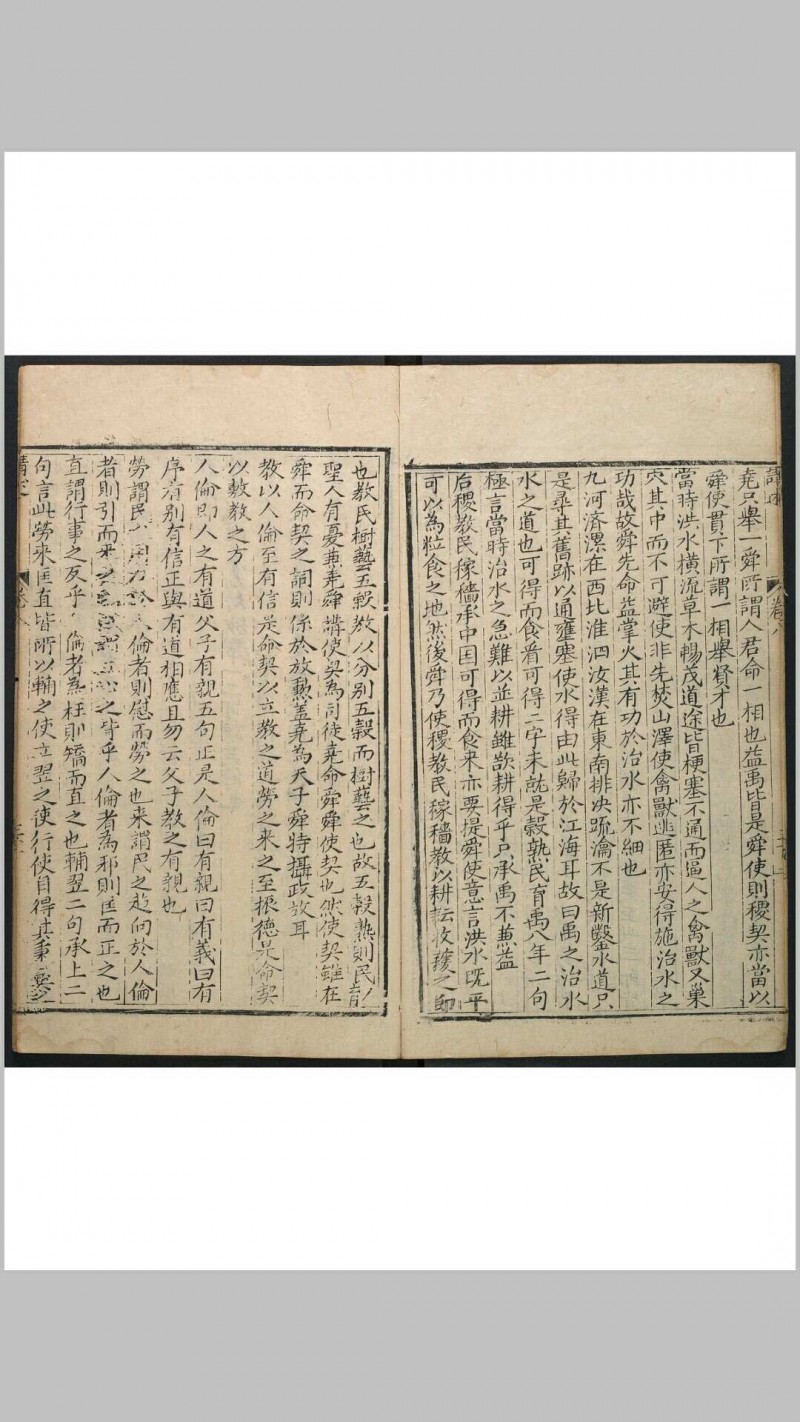 堯只舉一舜所謂人君命一相也益禹皆是舜使則稷契亦當以
舜使貫下所謂一相舉賢才也
當時洪水橫流草木暢茂道途皆梗塞不通而逼人之禽獸又巢
穴其中而不可避使非先焚山澤使禽獸逃匿亦安得施治水之
功哉故舜先命益掌火其有功於治水亦不細也
九河済漯在西北淮泗汝漢在東南排决䟽瀹不是新鑿水道只
是尋其舊跡以通壅塞使水得由此歸於江海耳故曰禹之治水
水之道也可得而食看可得二字未就是穀熟民育禹八年二句
極言當時治水之急難以並耕雖欲耕得乎只承禹不兼益
后稷教民稼穡承中国可得而食来亦要提舜使意言洪水既平
可以為粒食之地然後舜乃使稷教民稼穡教以耕耘收穫之節
也教民樹藝五穀教以分别五穀而樹藝之也故五穀熟則民育
聖人有憂兼堯舜講使契為司徒堯命舜舜使契也然使契雖在
舜而命契之詞則係於放勲盖堯為天子舜特攝政故耳
教以人倫至有信是命契以立教之道勞之来之至振德是命契
以敷教之方
人倫即人之有道父子有親五句正是人倫曰有親曰有義曰有
序有别有信正與有道相應且勿云父子教之有親也
勞謂民 人倫者則慰而勞之也来謂民之趋向於人倫
者則引而来 乎人倫者為邪則匡而正之也
直謂行事之反乎 倫者為枉則矯而直之也輔翌二句承上二
句言此勞来匡直皆所以輔之使立翌之使行使自得其秉
卷八